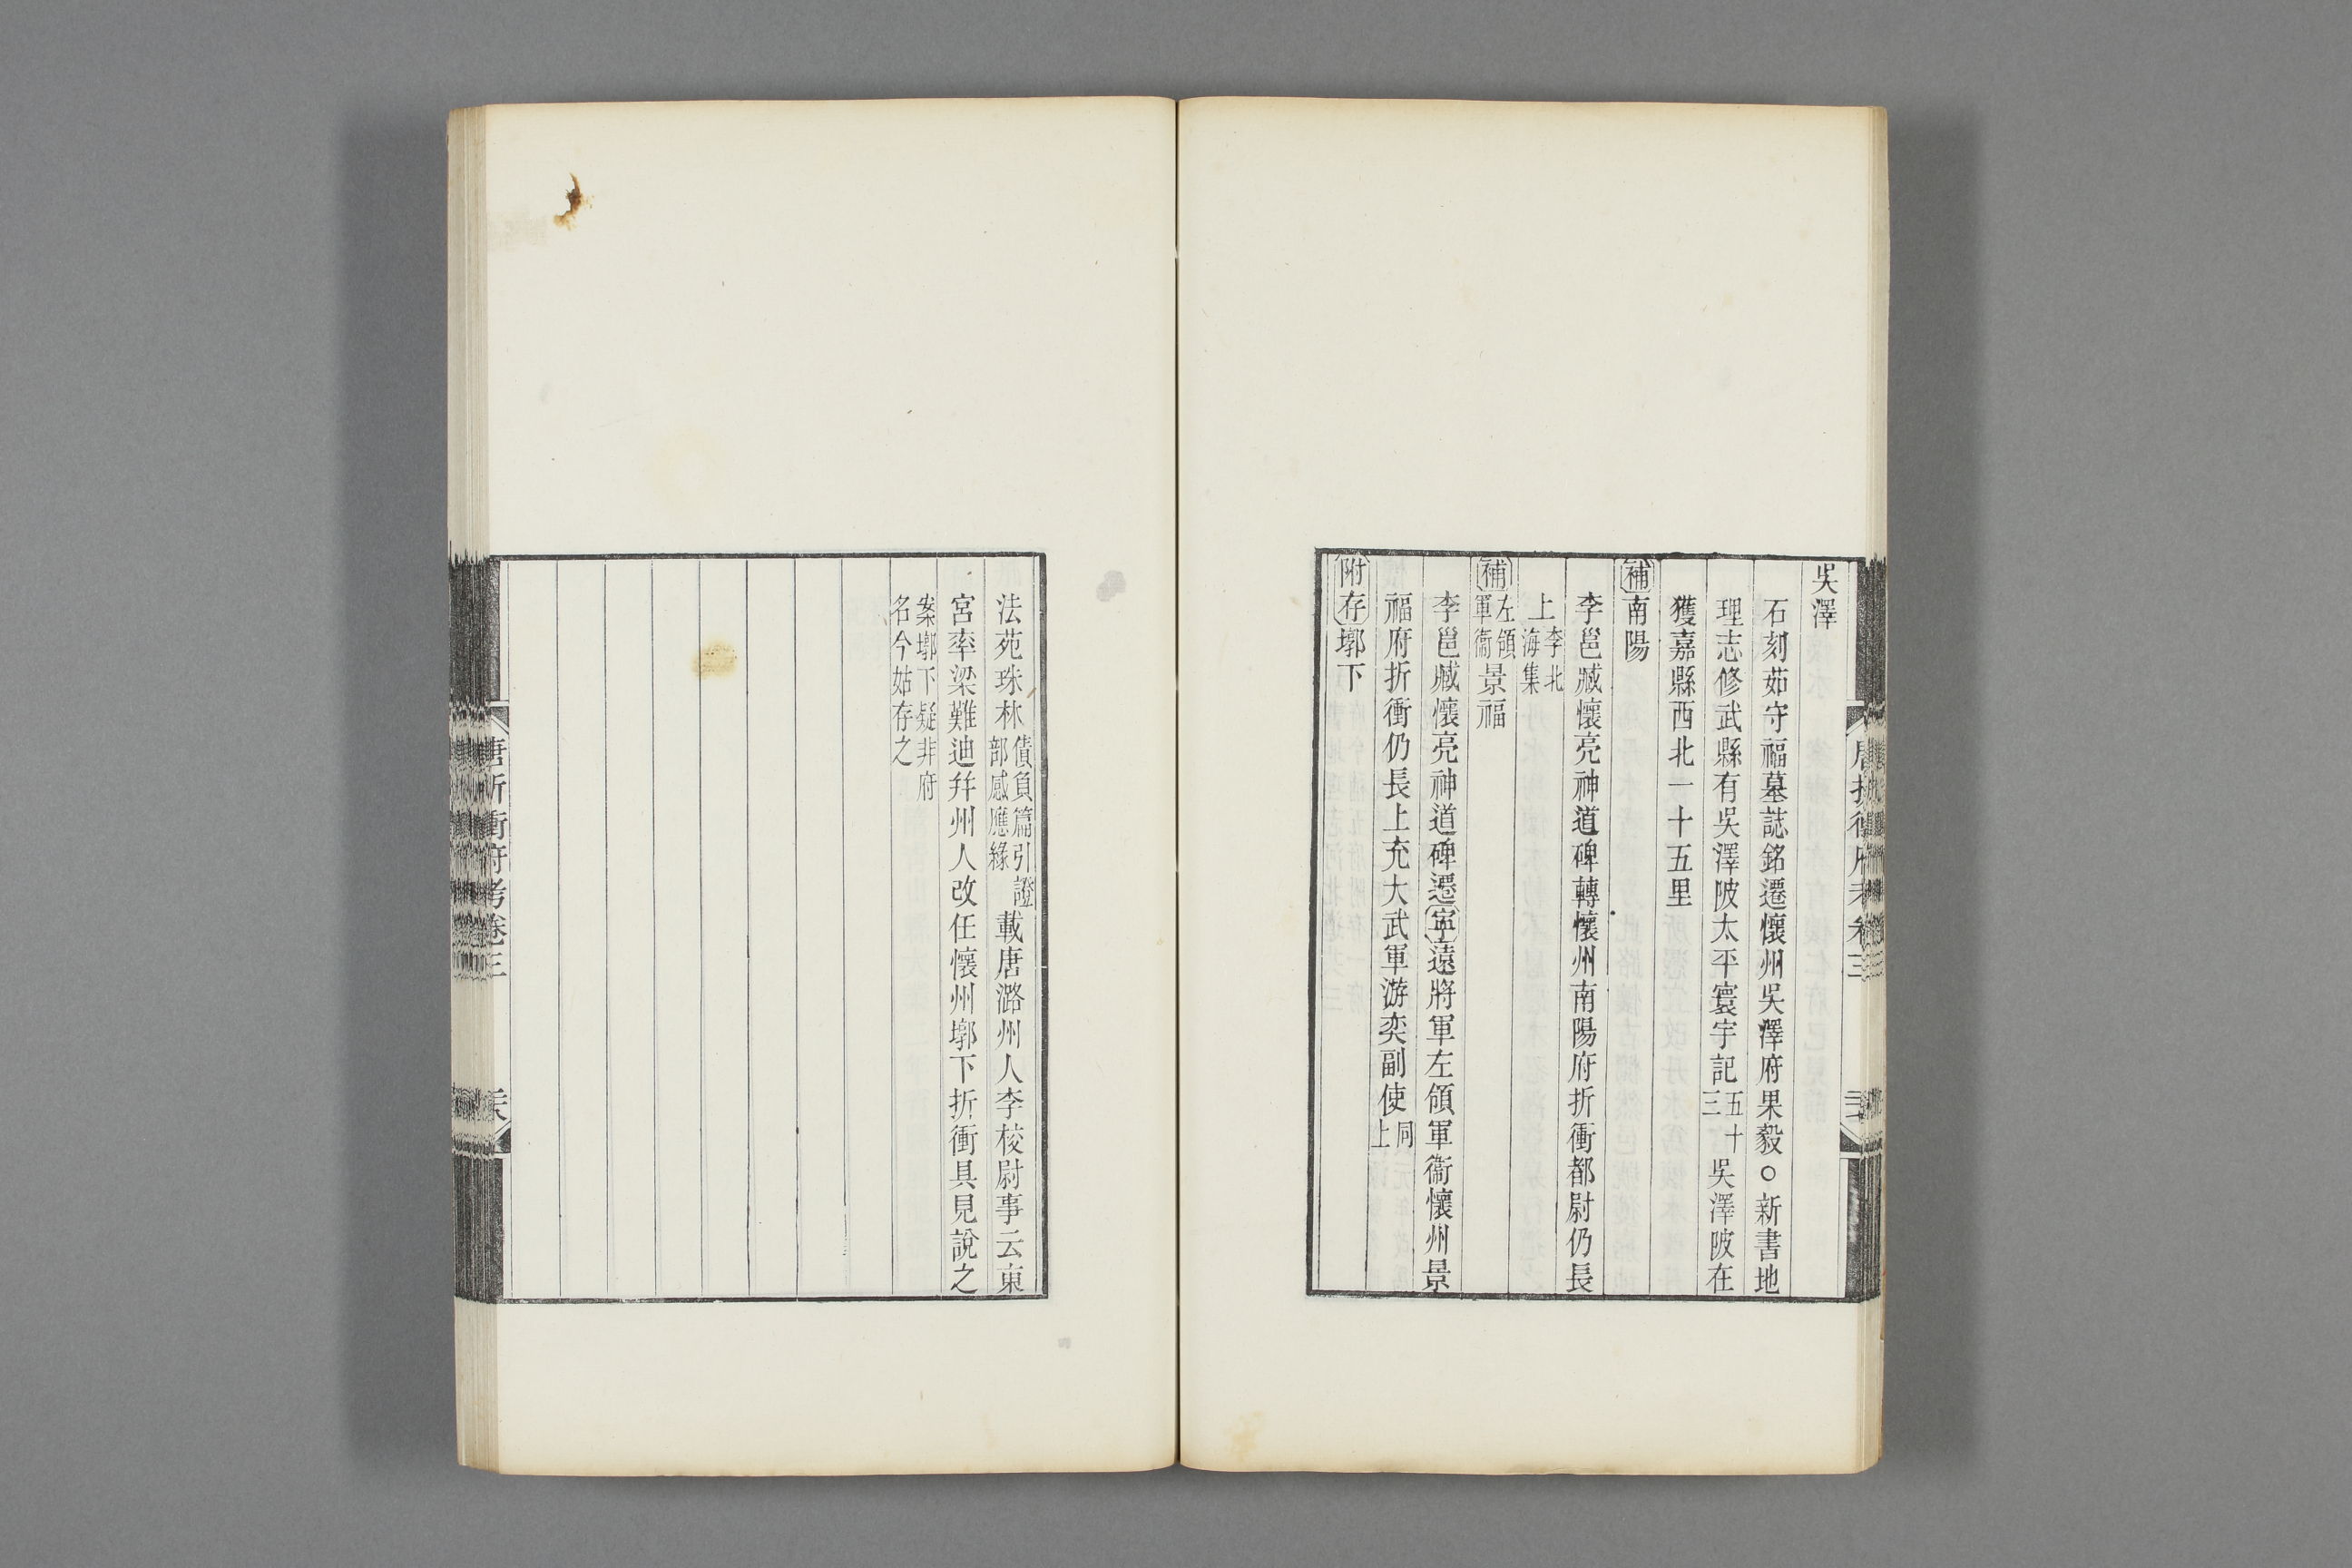 吳澤
石刻茹守福墓誌銘遷懷州吳澤府果毅○新書地
理志修武縣有吳澤陂太平寰宇記五十三吳澤陂在
獲嘉縣西北一十五里
補南陽
李邕臧懷亮神道碑轉懷州南陽府折衝都尉仍長
上李北海集
補左領軍衞景福
李邕臧懷亮神道碑遷寧遠將軍左領軍衞懷州景
福府折衝仍長上充大武軍游奕副使同上
附存墎下
法苑珠林債負篇引證部感應緣載唐潞州人李校尉事云東
宮率梁難迪幷州人改任懷州墎下折衝具見說之
案墎下疑非府
名今姑存之
唐折衝府考卷三